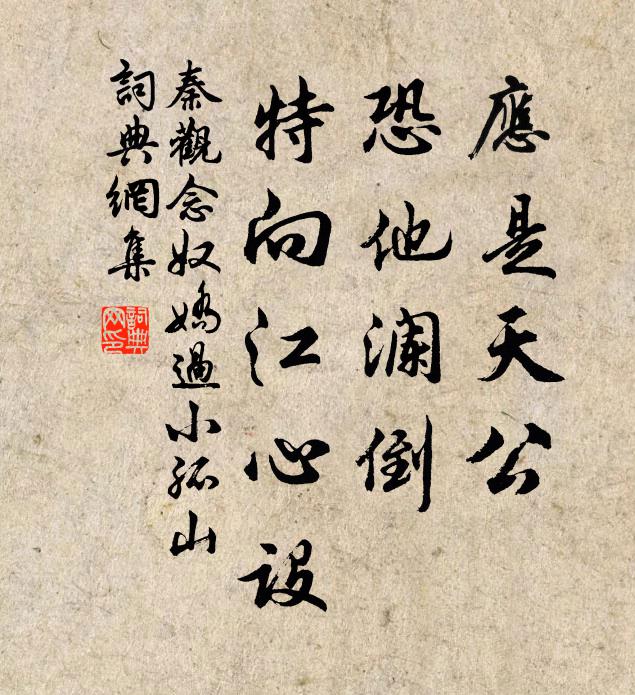 應是天公
恐他瀾倒
特向江心設
秦觀念奴嬌過小孤山
詞典網集
詞典
網印